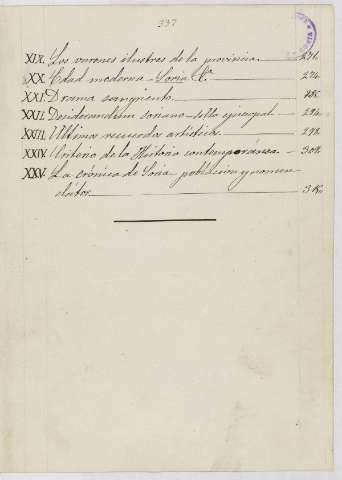 337
XIX. Los varones ilustres de la provincia. 271.
XX. Edad moderna - Soria
XXI. Drama sangriento.
XXII. Desiderandum soriano - silla episcopal - 294.
XXIII. Ultimo recuerdo artístico. 298.
XXIV. Criterio de la Historia contemporánea. 308.
XXV. La crónica de Soria poblacion y nomen
clátor.